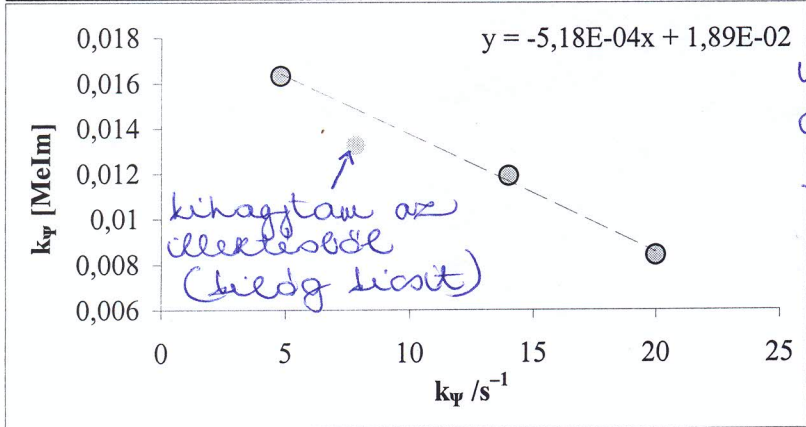 y = -5,18E-04x + 1,89E-02
0,018
0,016
0,014
0,012
0,01
0,008
0,006
kΨ [MeIm]
kihagytam az
illektésből
(kilóg kicsit)
0 5 10 15 20 25
kΨ /s⁻¹